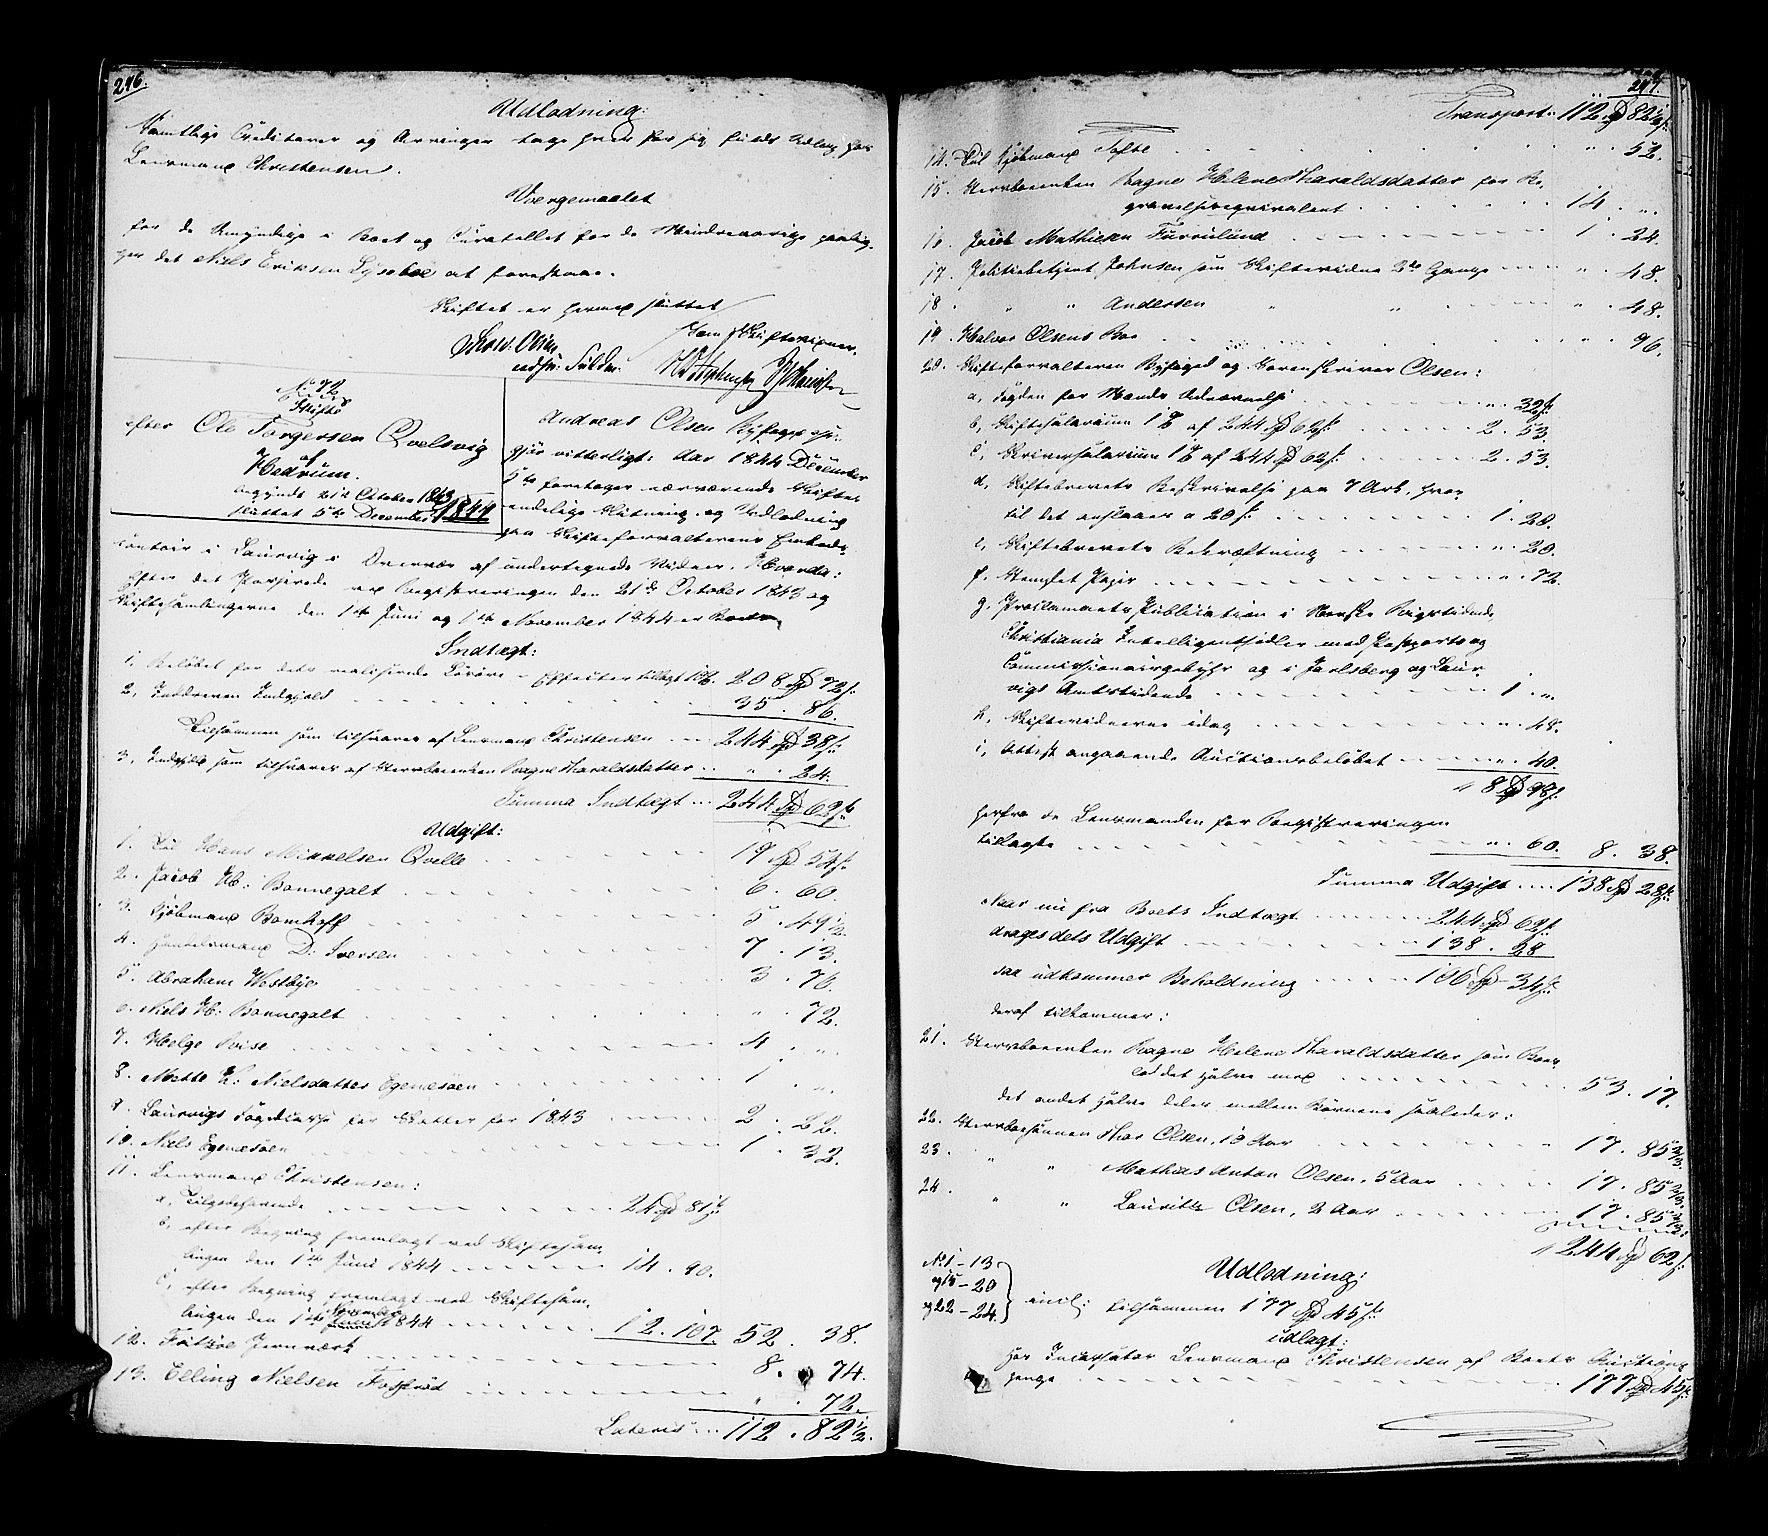 246.
Udlodning:
Samtlige Creditorer og Arvinger tage hver for sig fuldt Udlæg hos
Lensmand Christensen.
Værgemaalet
for de Umyndige i Boet og Curatellet for de Mindreaarige paalig-
ger det Niels Eriksen Lyseboe at forestaae.
Skiftet er hermed sluttet
Som Skiftevidner.
No 72
Skifte
efter Ole Torgersen Qvelsvig
af
Hedrum.
begyndt 21de October 1843
sluttet 5te December 1844
Andreas Olsen Byfoged
gjør vitterligt: Aar 1844 December
5te foretoges nærværende Skiftes
endelige Slutning og Udlodning
paa Skifteforvalterens Embeds-
contoir i Laurvig i Overvær af undertegnede Vidner. Hvorda:
efter det Passerede ved Registreringen den 21de October 1843 og
Skiftesamlingerne den 1ste Juni og 1ste November 1844 er Boets
Indtægt:
1, Beløbet for dets realiserede Løsøre-Effecter tillagt 208 Spd 72 s.
2, Inddreven Indgjeld 35. 86.
Tilsammen som tilsvares af Lensmand Christensen 244 Spd 38 s.
3, Indgjeld som tilsvares af Stervboenken Ragne Haraldsdatter " 24.
Summa Indtægt 244 Spd 62 s.
Udgift:
1. Til Hans Mikkelsen Qvelle 19 Spd 54 s.
2. Jacob H: Bonnegalt 6. 60.
3. Kjøbmand Bomhoff 5. 49 1/2.
4. Handelsmand D: Iversen 7. 13.
5. Abraham Westbye 3. 76.
6. Niels H: Bonnegalt " 72.
7. Helge 4. "
8. Mette K: Nielsdatter Egenesøen 1. "
9. Laurvigs Fogedcasse for Skatter for 1843 2. 22.
10. Niels Egenesøen 1. 32.
11. Lensmand Christensen:
a, Tilgodehavende 24 Spd 81 s.
b, efter Regning fremlagt ved Skiftesam-
lingen den 1ste Juni 1844 14. 90.
c, efter Regning fremlagt ved Skiftesam-
November
lingen den 1ste Juni 1844 12. 107. 52. 38.
12. Fritzøe Jernværk 8. 74.
13. Elling Nielsen Fossrød " 72.
Lateris 112. 82 1/2.
247.
Transport: 112 Spd 82 1/2 s.
14. Til Kjøbmand Tofte " 52.
15. Stervboenken Ragne Helene Haraldsdatter for Be-
gravelsesæqvivalent 14. "
16. Jacob Mathisen Furrulund 1. 24.
17. Politiebetjent Johnsen som Skiftevidne 2de Gange " 48.
18. " " Andersen " " " 48.
19. Halvor Olsens Boe 96.
20. Skifteforvalteren Byfoged og Sorenskriver Olsen:
a, Fogden for Mands Udnævnelse " 32 s.
b, Skiftesalarium 1 % af 244 Spd 62 s. 2. 53.
c, Skriversalarium 1 % af 244 Spd 62 s. 2. 53.
d, Skiftebrevets Beskrivelse paa 7 Ark, hvor
til det anslaaes a 20 s. 1. 20.
e, Skiftebrevets Bekræftning " 20.
f, Stemplet Papir " 72.
g, Proclamaets Publication i Norske Rigstidende,
Christiania Intelligentsedler med Postporto og
Commissionairgebyhr og i Jarlsberg og Laur-
vigs Amtstidende 1. "
h, Skiftevidnerne idag " 48.
i, Attest angaaende Auctionsbeløbet " 40.
8 Spd 98 s.
herfra de Lensmanden for Registreringen
tillagte " 60. 8. 38.
Summa Udgift 138 Spd 28 s.
Naar nu fra Boets Indtægt 244 Spd 62 s.
drages dets Udgift 138. 28
saa udkommer Beholdning 106 Spd 34 s.
deraf tilkommer:
21. Stervboenken Ragne Helene Haraldsdatter som Boes-
lod det halve med 53. 17.
det andet halve deles mellem Børnene saaledes:
22. Stervboesønnen Thor Olsen, 13 Aar 17. 85 2/3.
23. " " Mathias Anton Olsen, 5 Aar 17. 85 2/3.
24. " " Lauritz Olsen, 2 Aar 17. 85 2/3.
244 Spd 62 s.
Udlodning:
No 1 - 13
og 15 - 20
og 22 - 24. incl: tilsammen 177 Spd 45 s.
udlagt:
hos Incassator Lensmand Christensen af Boets Auctions-
penge 177 Spd 45 s.